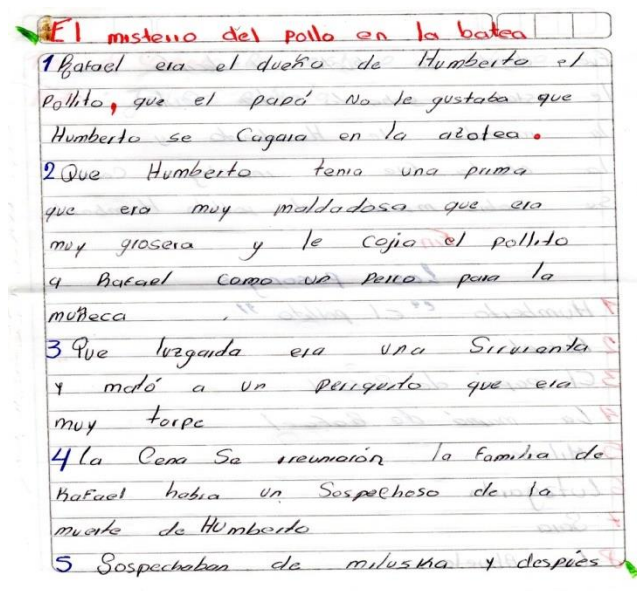 El misterio del pollo en la batea
1 Rafael era el dueño de Humberto el
Pollito, que el papá No le gustaba que
Humberto se Cagara en la azotea.
2 Que Humberto tenia una prima
que era muy maldadosa que era
muy grosera y le cojio el pollito
a Rafael como un Perro para la
muñeca
3 Que luzgarda era una Sirvienta
y mató a un periquito que era
muy torpe
4 la Cena Se reuniarón la familia de
Rafael habia un Sospechoso de la
muerte de Humberto
5 Sospechaban de miluska y despúes